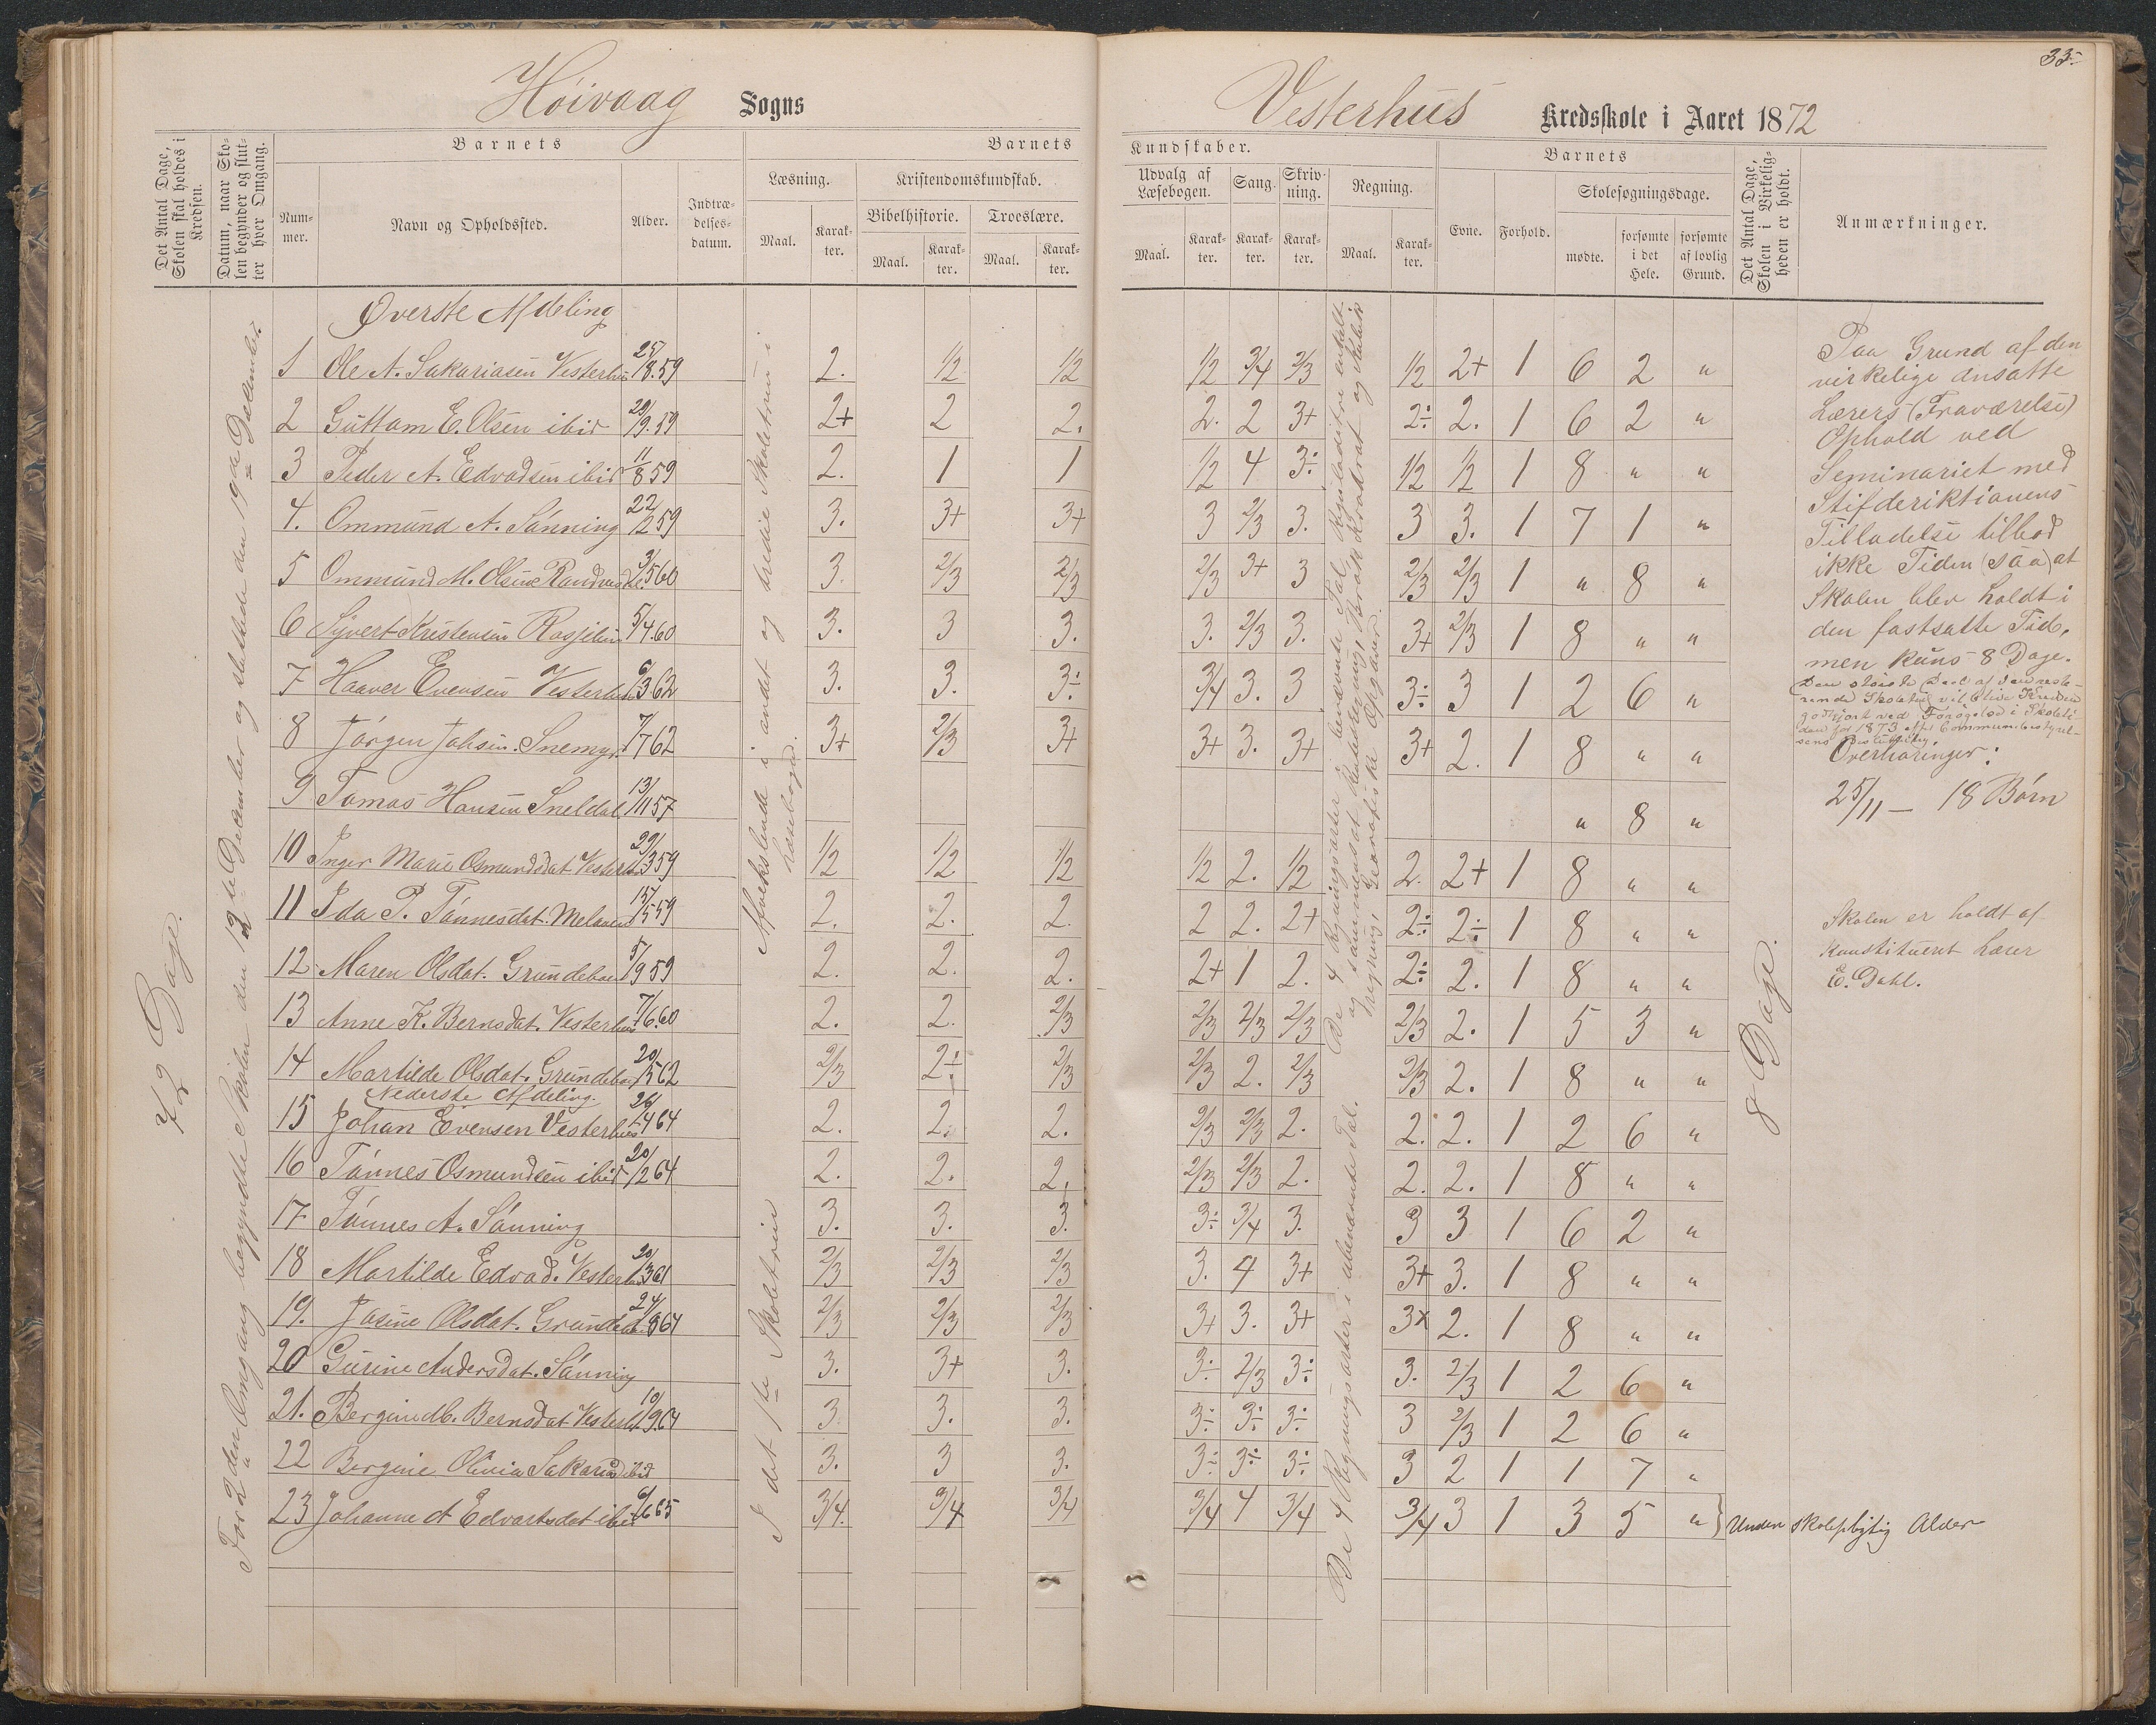 33
Høivaag Sogns
Vesterhus Kredsskole i Aaret 1872
Det Antal Dage, Skolen skal holdes i Kredsen.
Datum, naar Skolen begynder og slutter hver Omgang.
Barnets
Nummer.
Navn og Opholdssted.
Alder.
Indtrædelsesdatum.
Barnets
Læsning.
Maal.
Karakter.
Kristendomskundskab.
Bibelhistorie.
Maal.
Karakter.
Troeslære.
Maal.
Karakter.
Kundskaber.
Udvalg af Læsebogen.
Maal.
Karakter.
Sang.
Karakter.
Skrivning.
Karakter.
Regning.
Maal.
Karakter.
Barnets
Evne.
Forhold.
Skolesøgningsdage.
mødte.
forsømte i det Hele.
forsømte af lovlig Grund.
Det Antal Dage, Skolen i Virkeligheden er holdt.
Anmærkninger.
72 Dage.
For 2den Omgang begyndte Skolen den 12te December og sluttede den 19de December.
Øverste Afdeling
1 Ole A. Sakariasen Vesterhus 25/8.59 2. 1/2 1/2 1/2 3/4 2/3 1/2 2+ 1 6 2 "
2 Guttam E. Olsen ibid 29/9.59 2+ 2 2. 2. 2 3+ 2÷ 2. 1 6 2 "
3 Peder A. Edvadsen ibid 11/8 59 2. 1 1 1/2 4 3÷ 1/2 1/2 1 8 " "
4. Ommund A. Sánning 22/2 59 3. 3+ 3+ 3 2/3 3. 3 3. 1 7 1 "
5 Ommund M. Olsen 3/5 60 3. 2/3 2/3 2/3 3+ 3 2/3 2/3 1 " 8 "
6 Syvert Kristensen 5/4.60 3. 3 3. 3. 2/3 3. 3+ 2/3 1 8 " "
7 Haaver Evensen Vesterhus 6/3 62 3. 3. 3÷ 3/4 3. 3 3÷ 3 1 2 6 "
8 Jørgen Johsen Snemyr. 7/7 62 3+ 2/3 3+ 3+ 3. 3+ 3+ 2. 1 8 " "
9 Tomas Hansen Sneldal 13/11 57 " 8 "
10 Inger Marie Osmundsdat. Vesterhus 29/3 59 1/2 1/2 1/2 1/2 2. 1/2 2. 2+ 1 8 " "
11 Ida P. Tónnesdat. 15/5 59 2. 2. 2. 2 2. 2+ 2÷ 2÷ 1 8 " "
12 Maren Olsdat. Grundebæk 5/9 59 2. 2. 2. 2+ 1 2. 2÷ 2. 1 8 " "
13 Anne K. Bernsdat. Vesterhus 7/6.60 2. 2. 2/3 2/3 2/3 2/3 2/3 2. 1 5 3 "
14 Martilde Olsdat. Grundebæk 20/5 62 2/3 2÷ 2/3 2/3 2. 2/3 2/3 2. 1 8 " "
Nederste Afdeling.
15 Johan Evensen Vesterhus 26/4 64 2. 2. 2. 2/3 2/3 2. 2. 2. 1 2 6 "
16 Tónnes Osmundsen ibid 20/2 64 2. 2. 2. 2/3 2/3 2. 2. 2. 1 8 " "
17 Tónnes A. Sánning 3. 3. 3. 3÷ 3/4 3. 3 3 1 6 2 "
18 Martilde Edvad. Vesterhus 20/3 61 2/3 2/3 2/3 3. 4 3+ 3+ 3. 1 8 " "
19. Josine Olsdat. Grundebæk 24/8 64 2/3 2/3 2/3 3+ 3. 3+ 3x 2. 1 8 " "
20 Gurine Andersdat. Sánning 3. 3+ 3. 3÷ 2/3 3÷ 3. 2/3 1 2 6 "
21. Bergine M. Bernsdat Vesterhus 19/9.64 3. 3. 3. 3÷ 3÷ 3÷ 3 2/3 1 2 6 "
22 Bergine Olivia Sakariasd ibid 3. 3 3. 3÷ 3÷ 3÷ 3 2 1 1 7 "
23 Johanne A Edvartsdat ibid 6/6 65 3/4. 3/4 3/4 3/4 4 3/4 3/4 3 1 3 5 " } Under skolepligtig Alder
Afvekslende i andet og tredie Skoletrin i Læsebogen.
I det 1te Skoletrin
De 4 Regningsarter i benævnte Tal
De 4 Regningsarter i ubenævnte Tal.
8 Dage.
Paa Grund af den
virkelige ansatte
Lærers (Fraværelse)
Ophold ved
Seminariet med
Stifderiktionens
Tilladelse tillod
ikke Tiden (saa) at
Skolen blev holdt i
den fastsatte Tid,
men kuns 8 Dage.
Den största Deel af den resterende Skoletid vil blive Kredsen
godtgjort ved Forögelse i Skoletiden for 1873 eft. Communebestyrelsens Beslutning
Overhöringer:
25/11 — 18 Børn
Skolen er holdt af
Konstitueret Lærer
E. Dahl.